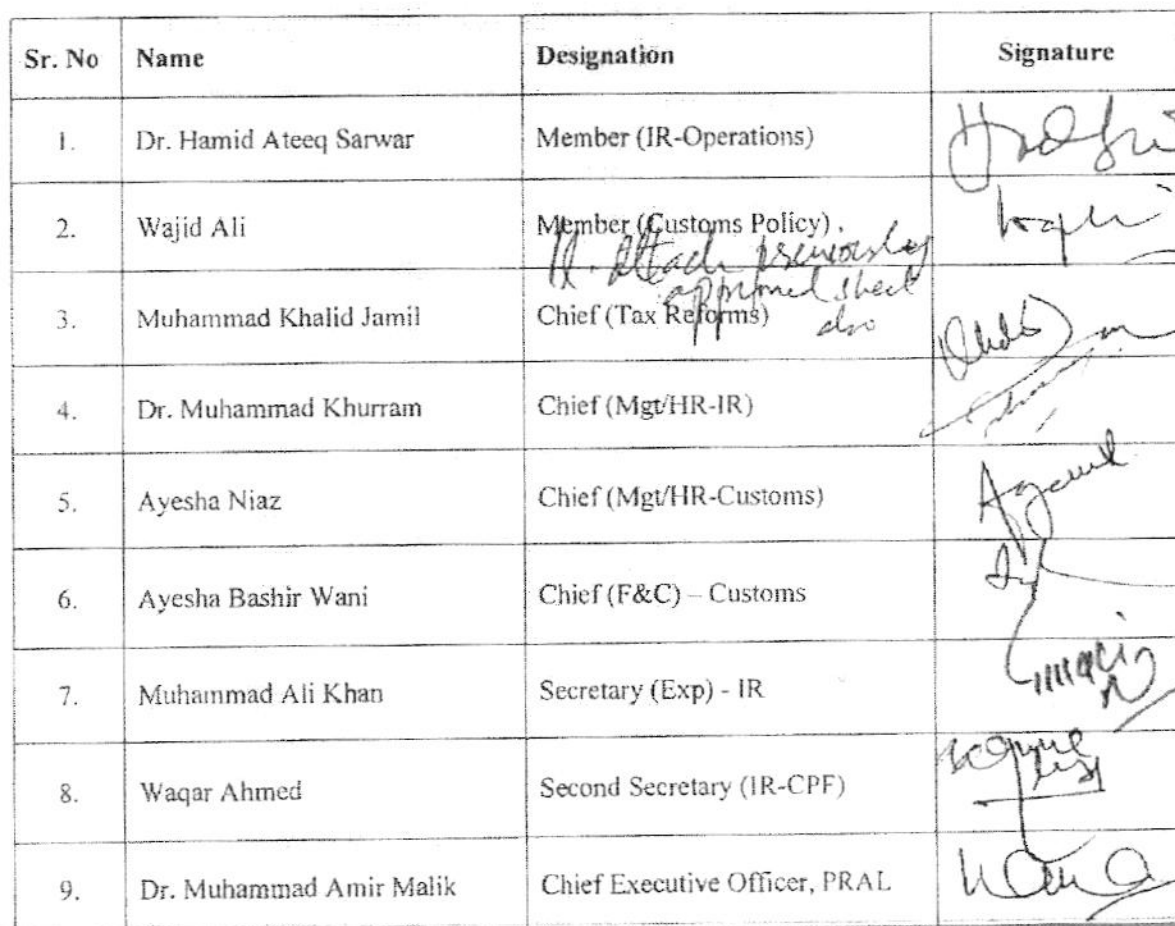 Sr. No Name Designation Signature
1. Dr. Hamid Ateeq Sarwar Member (IR-Operations)
2. Wajid Ali Member (Customs Policy)
Attach previously
approved sheet
also
3. Muhammad Khalid Jamil Chief (Tax Reforms)
4. Dr. Muhammad Khurram Chief (Mgt/HR-IR)
5. Ayesha Niaz Chief (Mgt/HR-Customs)
6. Ayesha Bashir Wani Chief (F&C) – Customs
7. Muhammad Ali Khan Secretary (Exp) - IR
8. Waqar Ahmed Second Secretary (IR-CPF)
9. Dr. Muhammad Amir Malik Chief Executive Officer, PRAL